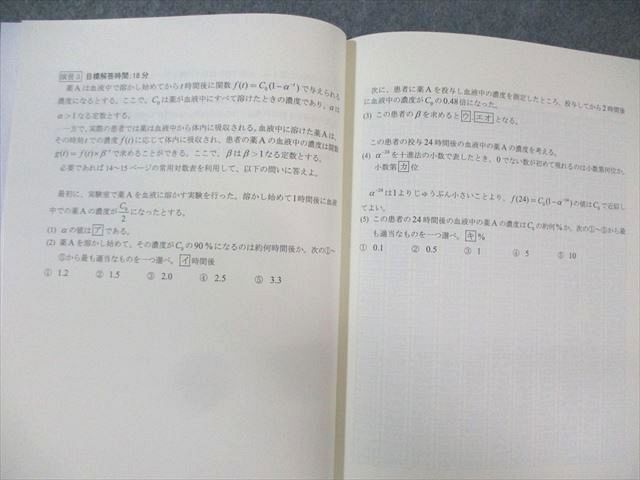 演習3 目標解答時間：18分
薬Aは血液中で溶かし始めてからt時間後に関数 f(t)=C₀(1−α⁻ᵗ) で与えられる
濃度になるとする。ここで、C₀は薬が血液中にすべて溶けたときの濃度であり、αは
α＞1なる定数とする。
一方で、実際の患者では薬は血液中から体内に吸収される。血液中に溶けた薬Aは、
その時刻tでの濃度f(t)に応じて体内に吸収され、患者の薬Aの血液中の濃度は関数
g(t)=f(t)×β⁻ᵗで求めることができる。ここで、βはβ＞1なる定数とする。
必要であれば14〜15ページの常用対数表を利用して、以下の問いに答えよ。
最初に、実験室で薬Aを血液に溶かす実験を行った。溶かし始めて1時間後に血液
中での薬Aの濃度がC₀/2になったとする。
(1) αの値はアである。
(2) 薬Aを溶かし始めて、その濃度がC₀の90％になるのは約何時間後か。次の①〜
⑤から最も適当なものを一つ選べ。イ時間後
① 1.2 ② 1.5 ③ 2.0 ④ 2.5 ⑤ 3.3
次に、患者に薬Aを投与し血液中の濃度を測定したところ、投与してから2時間後
に血液中の濃度がC₀の0.48倍になった。
(3) この患者のβを求めるとウ.エオとなる。
この患者の投与24時間後の血液中の薬Aの濃度を考える。
(4) α⁻²⁴を十進法の小数で表したとき、0でない数が初めて現れるのは小数第何位か。
小数第カ位
α⁻²⁴は1よりじゅうぶん小さいことより、f(24)=C₀(1−α⁻²⁴)の値はC₀で近似し
てよい。
(5) この患者の24時間後の血液中の薬Aの濃度はC₀の約何％か。次の①〜⑤から最
も適当なものを一つ選べ。キ％
① 0.1 ② 0.5 ③ 1 ④ 5 ⑤ 10